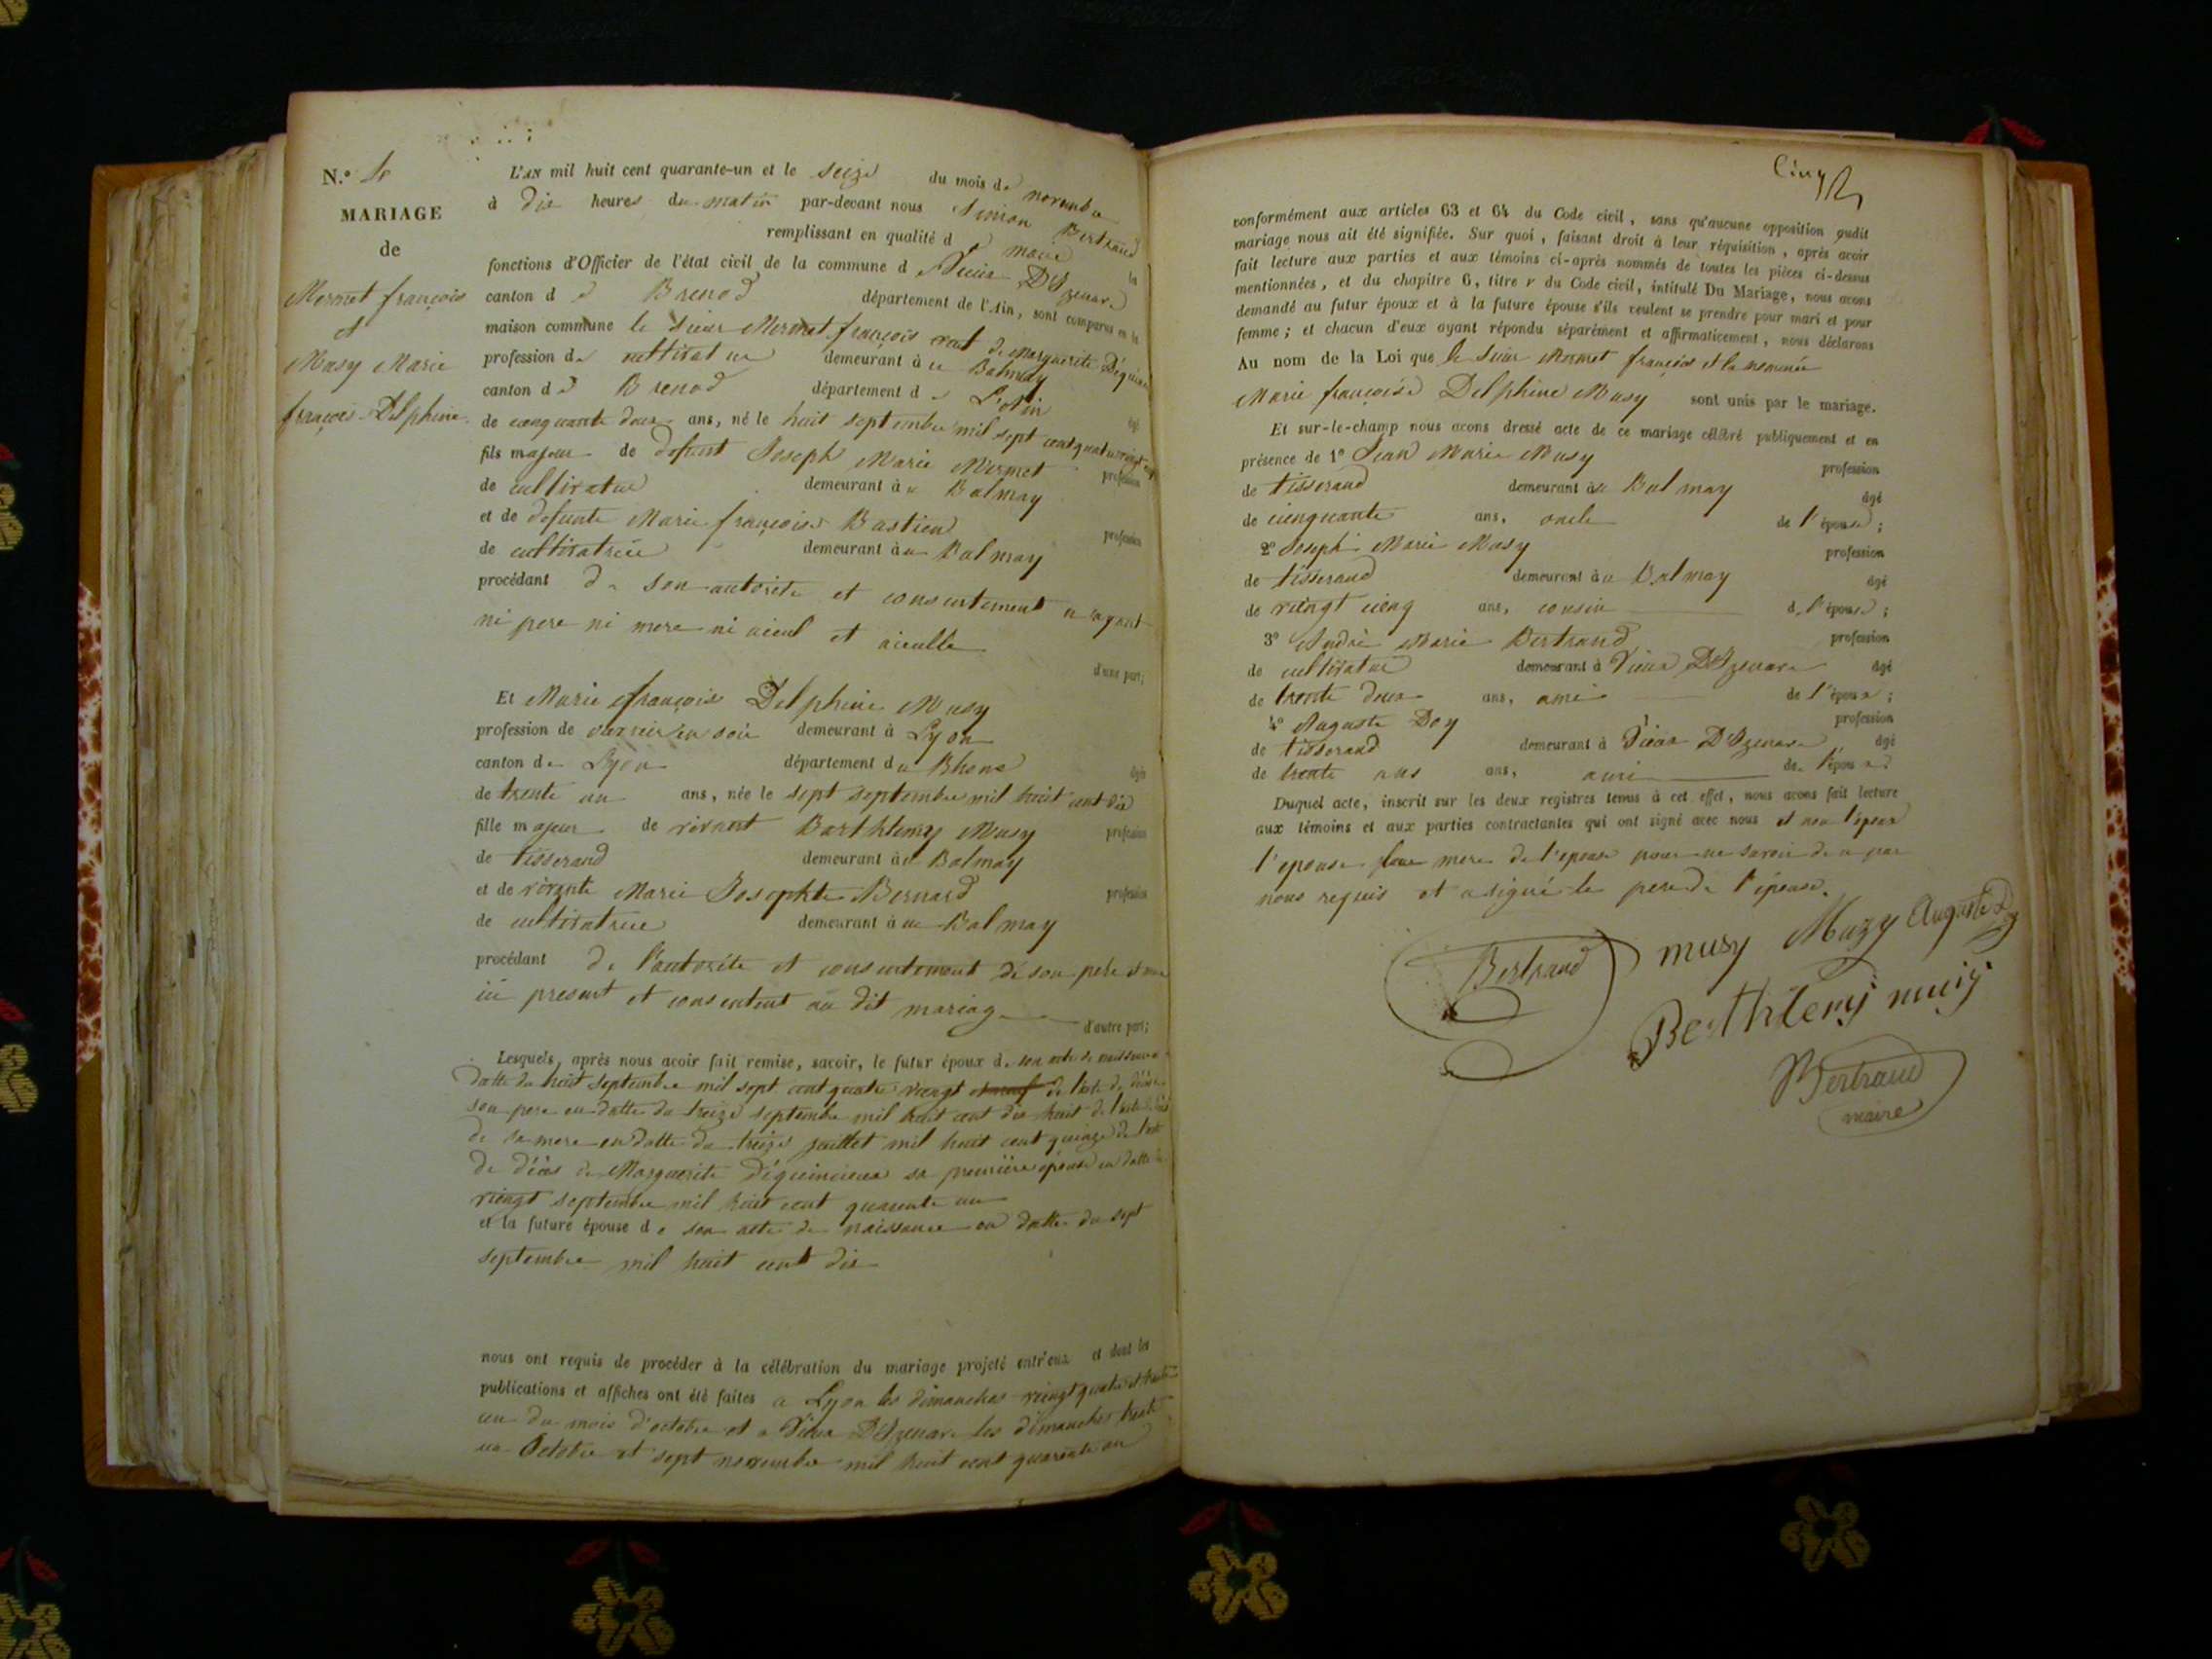 N.o 4
MARIAGE
de
Mermet françois
et
Musy Marie
françois Delphine
L'AN mil huit cent quarante-un et le seize du mois de novembre
à dix heures du matin par-devant nous Simion Bertrand
remplissant en qualité d maire les
fonctions d'Officier de l'état civil de la commune de Vieux D'Izenave
canton d Brenod département de l'Ain, sont comparus en la
maison commune le sieur Mermet françois veuf de Marguerite Déquin
profession de cultivateur demeurant à u Balmay
canton d Brenod département d L'Ain
de cinquante deux ans, né le huit septembre mil sept cent quatre vingt
fils majeur de defunt Joseph Marie Mermet profession
de cultivateur demeurant à u Balmay
et de defunte Marie françoise Bastien profession
de cultivatrice demeurant à u Balmay
procédant de son autorite et consentement n'ayant
ni pere ni mere ni aieul et aieulle
d'une part;
Et Marie françois Delphine Musy
profession de ouvriere en soie demeurant à Lyon
canton de Lyon département du Rhone âgée
de trente un ans, née le sept septembre mil huit cent dix
fille majeur de vivant Barthlemy Musy profession
de tisserand demeurant à u Balmay
et de vivante Marie Josephte Bernard profession
de cultivatrice demeurant à u Balmay
procédant de l'autorite et consentement de son pere et mere
ici present et consentent au dit mariage
d'autre part;
Lesquels, après nous avoir fait remise, savoir, le futur époux de son acte de naissance
datte du huit septembre mil sept cent quatre vingt de l'acte de décès
son pere en datte du treize septembre mil huit cent dix huit de l'acte
de sa mere en datte du treize juillet mil huit cent quinze de l'acte
de décès de Marguerite Déquincieux sa première épouse en datte
vingt septembre mil huit cent quarante un
et la future épouse de son acte de naissance en datte du sept
septembre mil huit cent dix
nous ont requis de procéder à la célébration du mariage projeté entr'eux et dont les
publications et affiches ont été faites a Lyon les dimanches vingt quatre et trente
un du mois d'octobre et a Vieux D'Izenave les dimanches trente
un Octobre et sept novembre mil huit cent quarante un
Cinq
conformément aux articles 63 et 64 du Code civil, sans qu'aucune opposition audit
mariage nous ait été signifiée. Sur quoi, faisant droit à leur réquisition, après avoir
fait lecture aux parties et aux témoins ci-après nommés de toutes les pièces ci-dessus
mentionnées, et du chapitre 6, titre v du Code civil, intitulé Du Mariage, nous avons
demandé au futur époux et à la future épouse s'ils veulent se prendre pour mari et pour
femme; et chacun d'eux ayant répondu séparément et affirmativement, nous déclarons
Au nom de la Loi que le sieur Mermet françois et la nommée
Marie françoise Delphine Musy sont unis par le mariage.
Et sur-le-champ nous avons dressé acte de ce mariage célébré publiquement et en
présence de 1o Jean Marie Musy profession
de tisserand demeurant à u Balmay âgé
de cinquante ans, oncle de l'épouse;
2o Joseph Marie Musy profession
de tisserand demeurant à u Balmay âgé
de vingt cinq ans, cousin de l'épouse;
3o André Marie Bertrand profession
de cultivateur demeurant à Vieux D'Izenave âgé
de trente deux ans, ami de l'époux;
4o Auguste Doy profession
de tisserand demeurant à Vieux D'Izenave âgé
de trente ans ans, ami de l'époux
Duquel acte, inscrit sur les deux registres tenus à cet effet, nous avons fait lecture
aux témoins et aux parties contractantes qui ont signé avec nous et non l'époux
l'epouse mere de l'epouse pour ne savoir de ce par
nous requis et a signé le pere de l'épouse.
Bertrand musy Muzy Auguste Doy
Barthlemy musy
Bertrand
maire